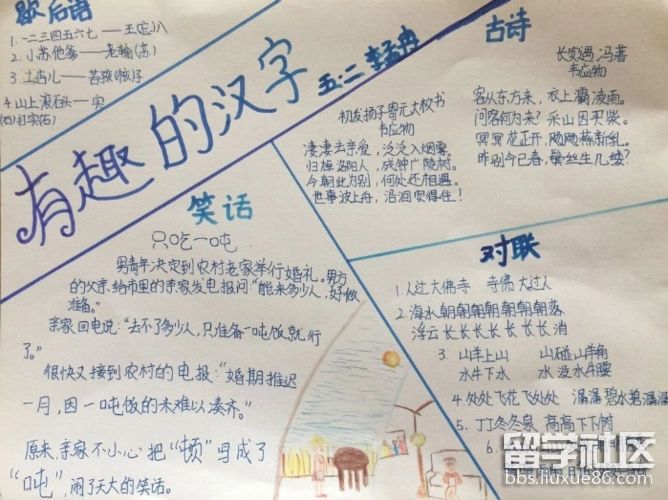 歇后语
1.一二三四五六七——王(忘)八
2.小苏他爹——老输(苏)
3
4 山上滚石头——实
(石)打实(石)
有趣的汉字
五.二
古诗
长安遇冯著
韦应物
客从东方来，衣上灞陵雨。
问客何为来？采山因买柴。
冥冥花正开，飏飏燕新乳。
昨别今已春，鬓丝生几缕？
初发扬子寄元大校书
韦应物
凄凄去亲爱，泛泛入烟雾。
归棹洛阳人，残钟广陵树。
今朝此为别，何处还相遇。
世事波上舟，沿洄安得住！
笑话
只吃一吨
男青年决定到农村老家举行婚礼。男方
的父亲给市里的亲家发电报问："能来多少人，好做
准备。"
亲家回电说："去不了多少人，只准备一吨饭就行
了。"
很快又接到农村的电报："婚期推迟
一月，因一吨饭的米难以凑齐。"
原来，亲家不小心把"顿"写成了
"吨"，闹了天大的笑话。
对联
1.人过大佛寺 寺佛大过人
2.海水朝朝朝朝朝朝朝落
浮云长长长长长长长消
3. 山羊上山 山碰山羊角
水牛下水 水没水牛腰
4.处处飞花飞处处 潺潺碧水碧潺潺
5.丁丁冬冬泉 高高下下树
6.
留学社区
bbs.liuxue86.com